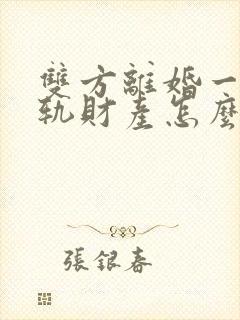 雙方離婚一
軌財產怎麼
張銀春